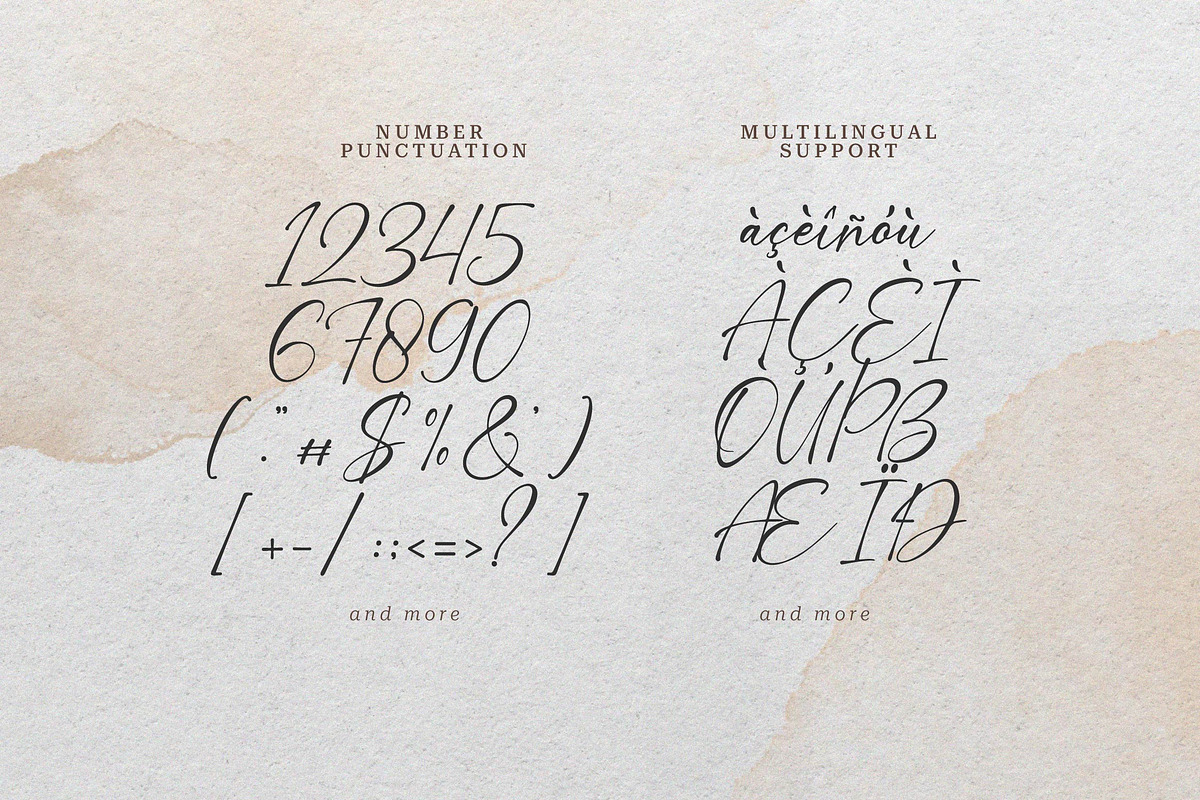 NUMBER
PUNCTUATION
12345
67890
( . " # $ % & ' )
[ + - / : ; < = > ? ]
and more
MULTILINGUAL
SUPPORT
àçèîñóù
ÀÇÈÌ
ÒÙPB
ÆÏÐ
and more